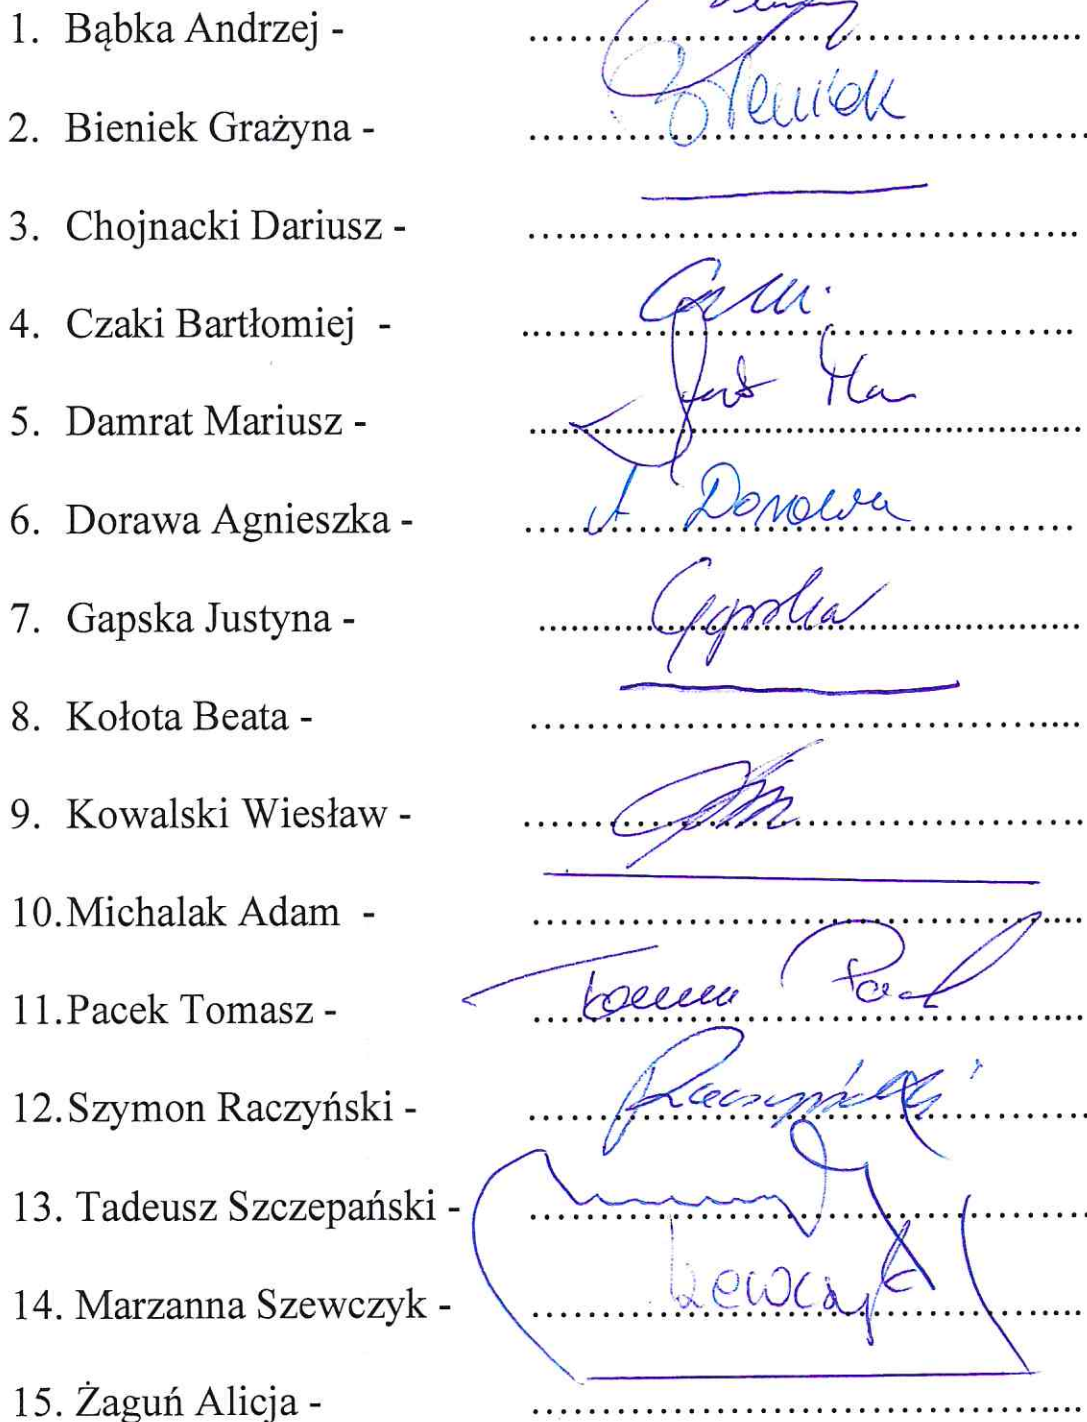 1. Bąbka Andrzej - ........................................
2. Bieniek Grażyna - ........................................ Bieniek
3. Chojnacki Dariusz - ........................................
4. Czaki Bartłomiej - ........................................
5. Damrat Mariusz - ........................................
6. Dorawa Agnieszka - ........................................ A Dorawa
7. Gapska Justyna - ........................................ Gapska
8. Kołota Beata - ........................................
9. Kowalski Wiesław - ........................................
10. Michalak Adam - ........................................
11. Pacek Tomasz - ........................................
12. Szymon Raczyński - ........................................ Raczyński
13. Tadeusz Szczepański - ........................................
14. Marzanna Szewczyk - ........................................
15. Żaguń Alicja - ........................................